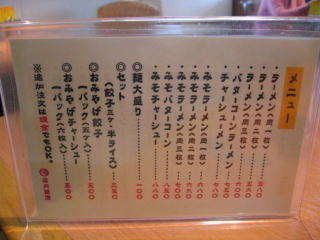 メニュー
・ラーメン(肉一枚) 五八〇
・ラーメン(肉二枚) 六八〇
・ラーメン(肉三枚)
・バターコーンラーメン
・チャーシューメン
・みそラーメン(肉一枚) 六八〇
・みそラーメン(肉二枚)
・みそラーメン(肉三枚)
・みそバターコーン
・みそチャーシュー
◎麺大盛り 一〇〇
◎セット
(餃子三ヶ・半ライス)
◎おみやげ餃子
一パック(五ヶ入)
◎おみやげチャーシュー
一パック(六枚入) 五〇〇
※追加注文は現金でもOK。